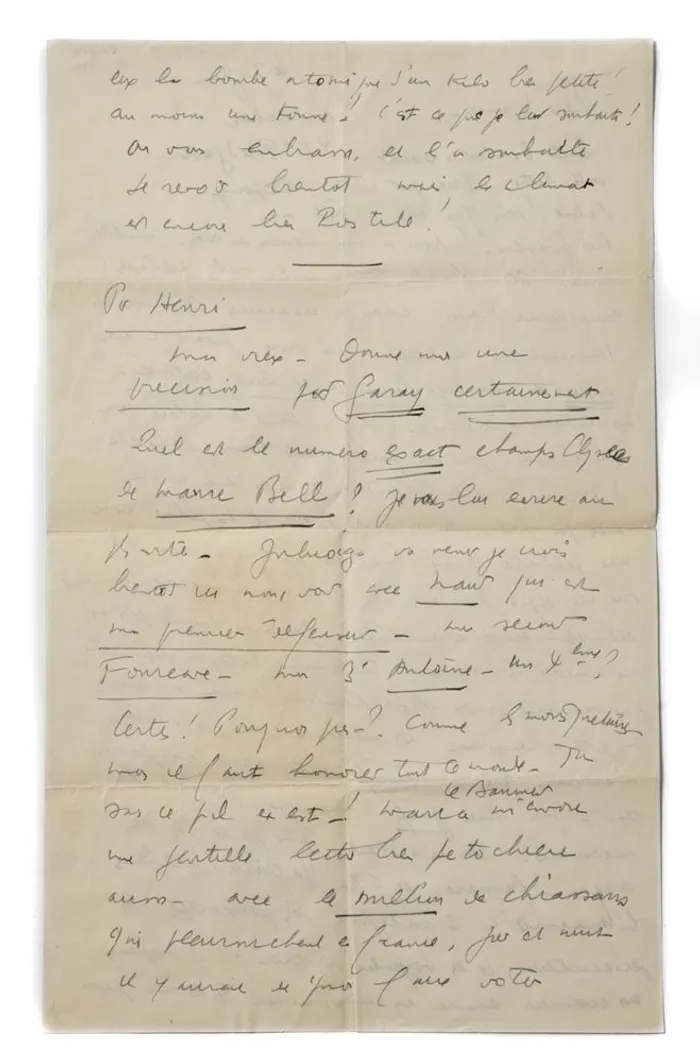 eux la bombe atomique d'un Kilo bien petite!
au moins une tonne! C'est ce que je leur souhaite!
On vous embrasse, et l'on souhaite
se revoir bientot mais le climat
est encore bien hostile!
Pr Henri
mon vieux - Donne moi une
precision
certainement
Quel est le numero exact champs Elysees
de Marie Bell? Je vais lui ecrire au
plus vite - va venir je crois
bientot ici nous voir avec Naud qui est
mon premier defenseur - mon second
Fourcade - mon 3e Antoine - Un 4eme?
Certes! Pourquoi pas? Comme
mais il faut honorer tout le monde - Tu
sais ce qu'il en est! Maria le Bannier m'envoie
une gentille lettre bien petochiere
aussi - avec le million de chiassans
qui pleurnichent en France, jour et nuit
il y aurait de quoi faire voter